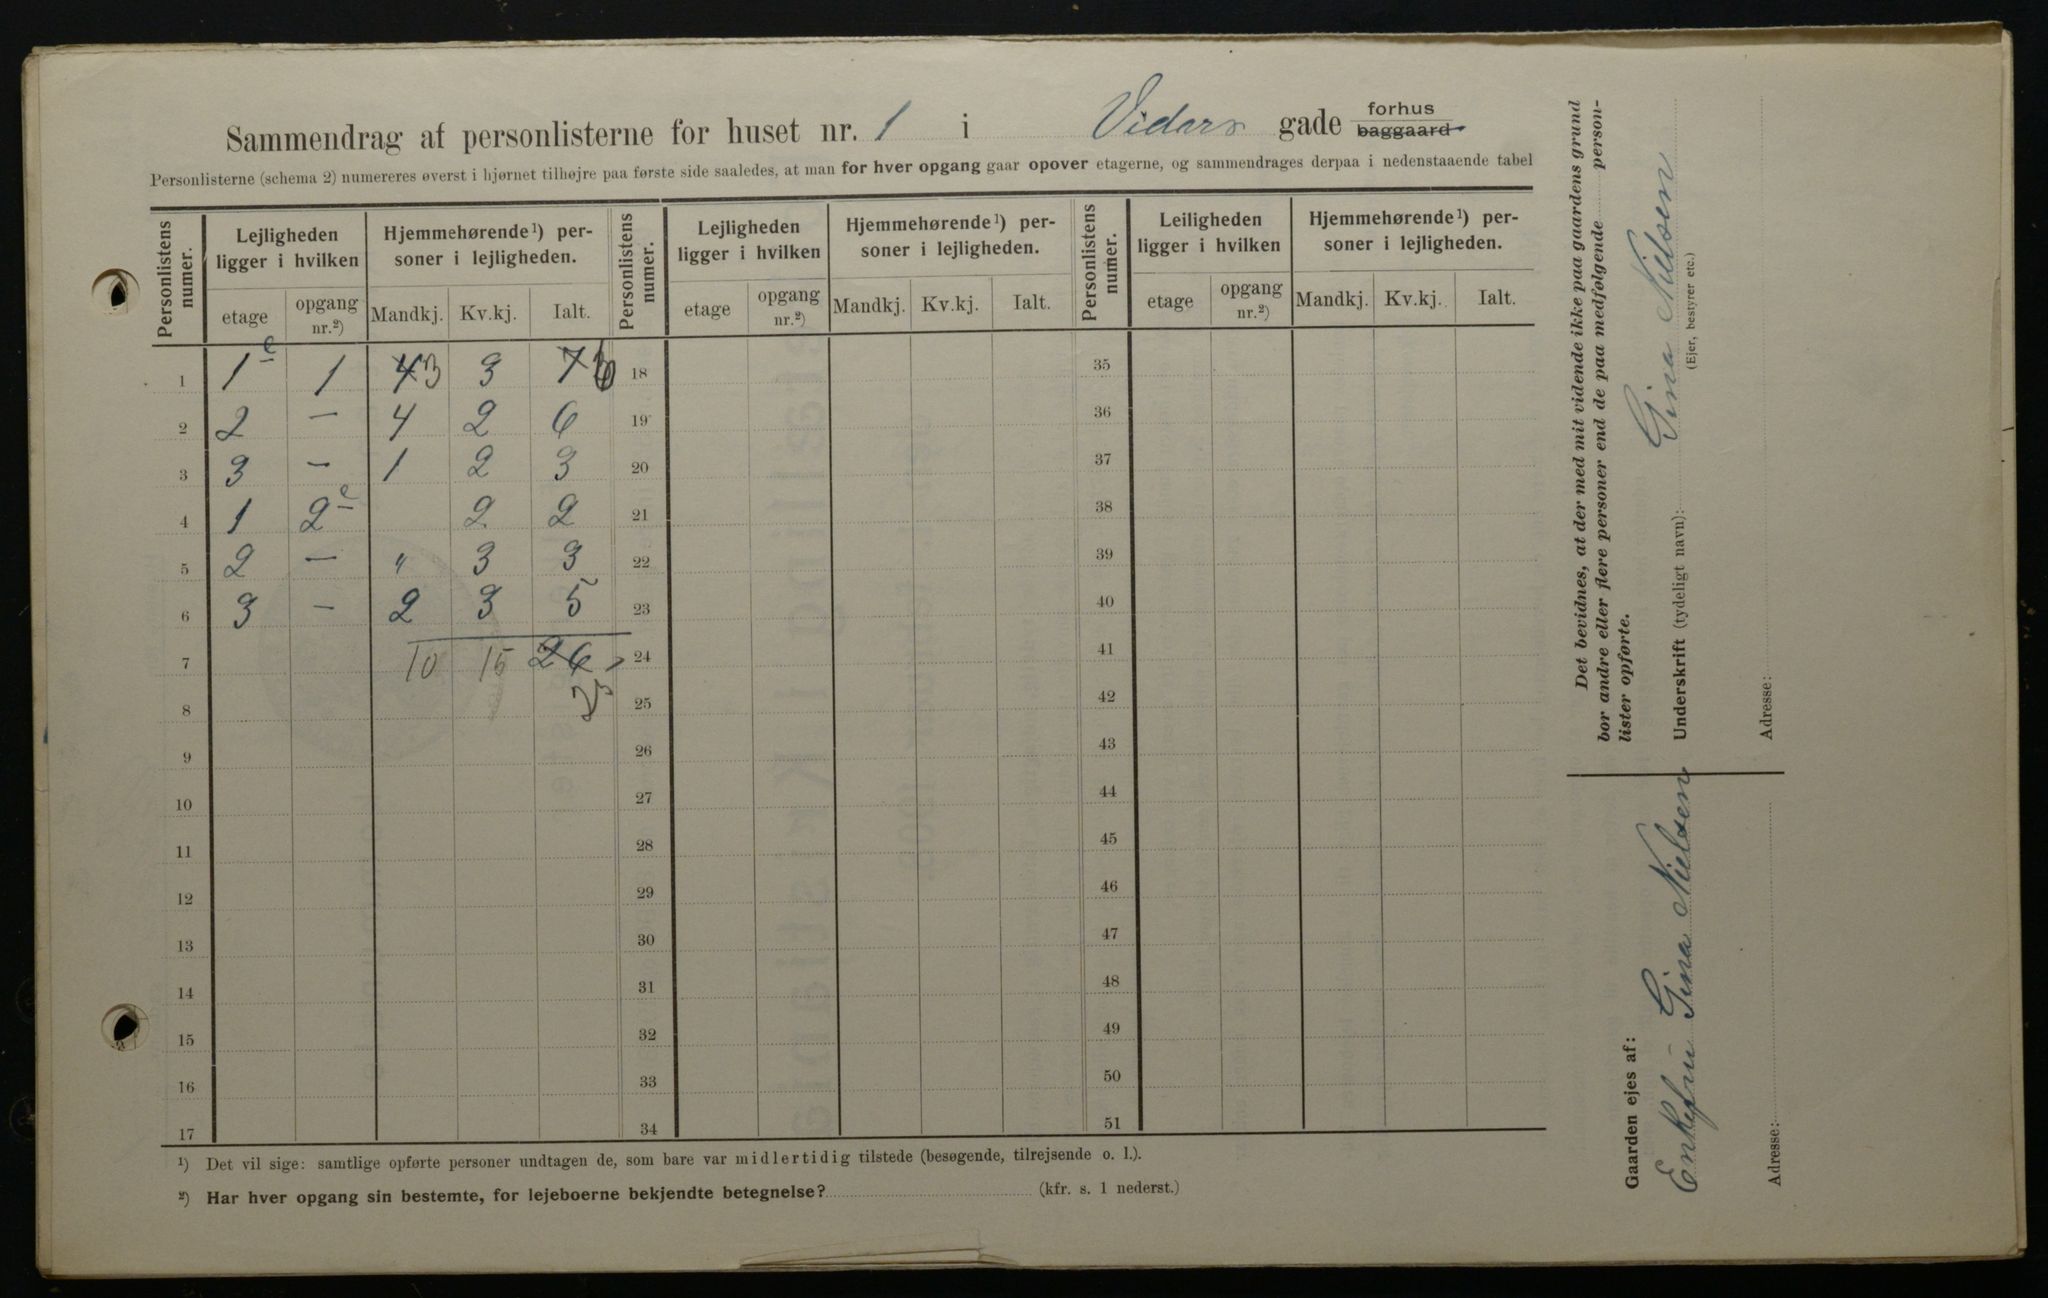 Sammendrag af personlisterne for huset nr. 1 i Vidars gade forhus
baggaard
Personlisterne (schema 2) numereres øverst i hjørnet tilhøjre paa første side saaledes, at man for hver opgang gaar opover etagerne, og sammendrages derpaa i nedenstaaende tabel
Personlistens numer. Lejligheden ligger i hvilken Hjemmehørende¹) personer i lejligheden. Personlistens numer. Lejligheden ligger i hvilken Hjemmehørende¹) personer i lejligheden. Personlistens numer. Leiligheden ligger i hvilken Hjemmehørende¹) personer i lejligheden.
etage opgang nr.²) Mandkj. Kv.kj. Ialt. etage opgang nr.²) Mandkj. Kv.kj. Ialt. etage opgang nr.²) Mandkj. Kv.kj. Ialt.
1 1e 1 4 3 3 7 6 18 35
2 2 — 4 2 6 19 36
3 3 — 1 2 3 20 37
4 1 2e 2 2 21 38
5 2 — " 3 3 22 39
6 3 — 2 3 5 23 40
7 10 15 26 24 41
8 25 25 42
9 26 43
10 27 44
11 28 45
12 29 46
13 30 47
14 31 48
15 32 49
16 33 50
17 34 51
¹) Det vil sige: samtlige opførte personer undtagen de, som bare var midlertidig tilstede (besøgende, tilrejsende o. l.).
²) Har hver opgang sin bestemte, for lejeboerne bekjendte betegnelse? (kfr. s. 1 nederst.)
Det bevidnes, at der med mit vidende ikke paa gaardens grund
bor andre eller flere personer end de paa medfølgende person-
lister opførte.
Gina Nilsen
Underskrift (tydeligt navn):
(Ejer, bestyrer etc.)
Adresse:
Gaarden ejes af:
Enkefru Gina Nielsen
Adresse: